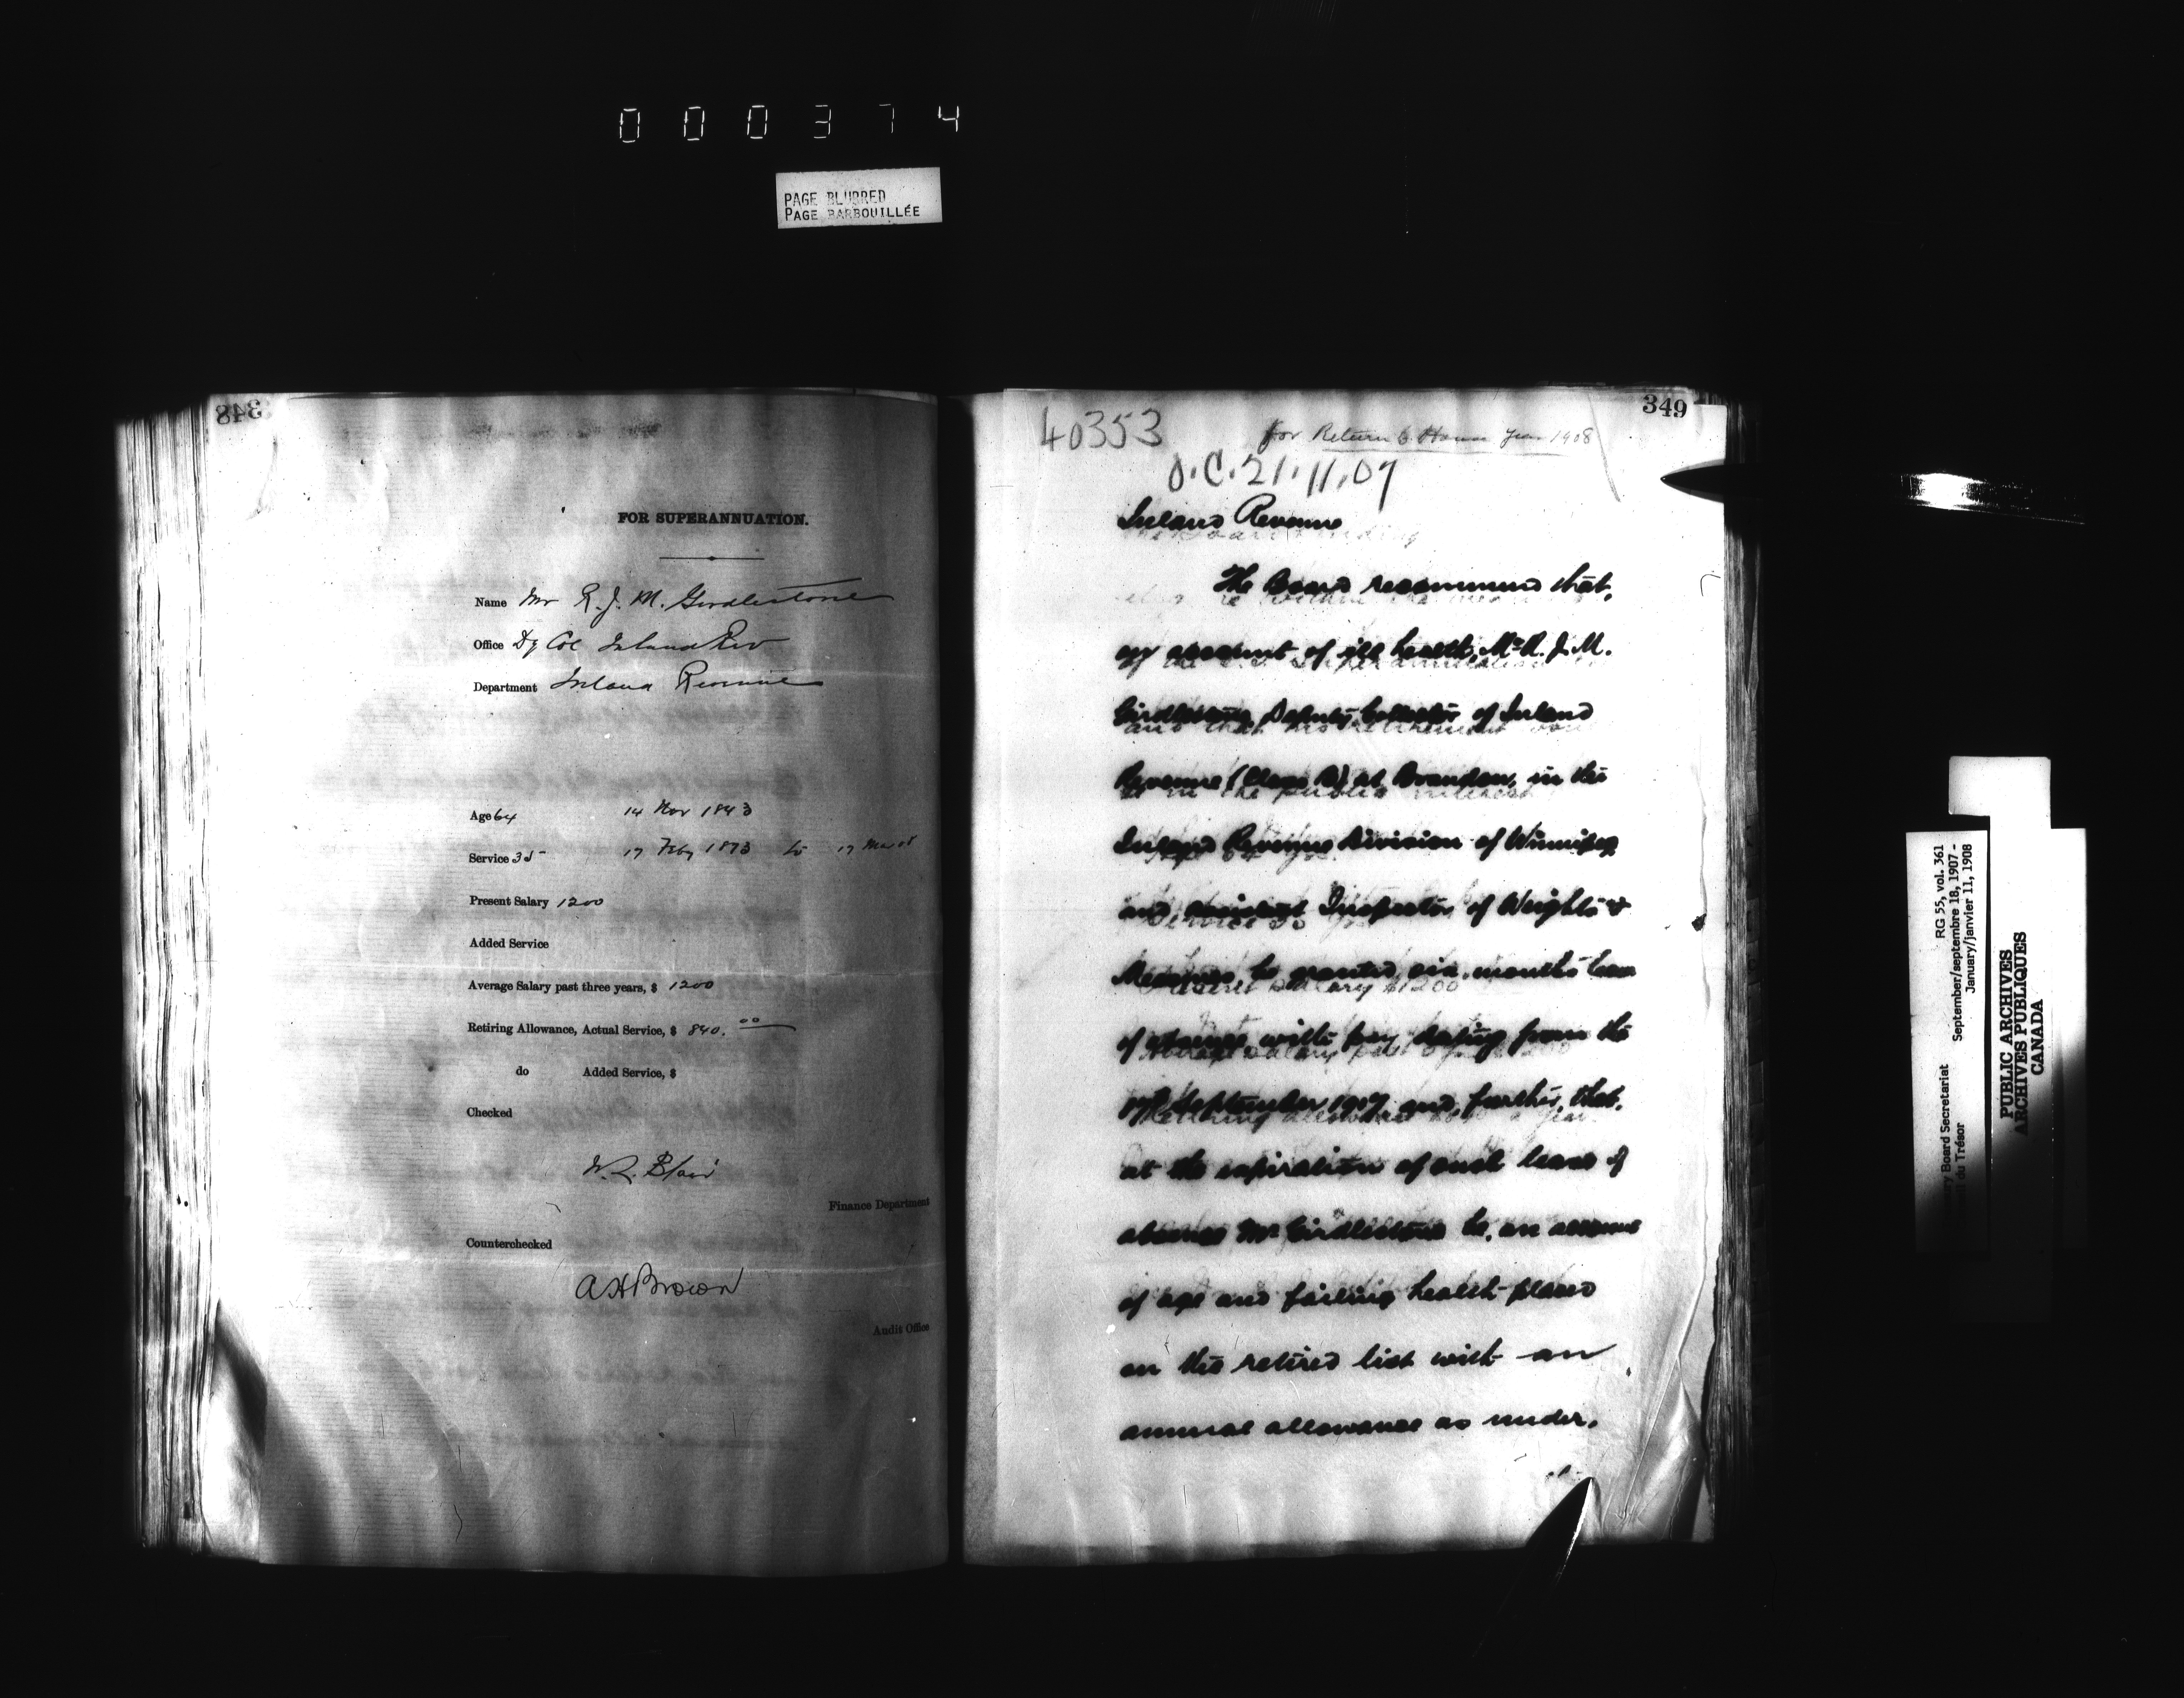 000374
PAGE BLURRED
PAGE BARBOUILLÉE
348
FOR SUPERANNUATION.
Name Mr R. J. M. Girdlestone
Office Dy Col Inland Rev
Department Inland Revenue
Age 64 14 Nov 1843
Service 35 17 Feby 1873 to 17 Mar 08
Present Salary 1200
Added Service
Average Salary past three years, $ 1200
Retiring Allowance, Actual Service, $ 840.00
do Added Service, $
Checked
W. L. Blair
Finance Department
Counterchecked
A H Brown
Audit Office
349
40353
for Return to House Jan 1908
O.C. 21.11.07
Inland Revenue
The Board recommend that,
on account of ill health, Mr R. J. M.
Girdlestone, Deputy Collector of Inland
Revenue (Class B) at Brandon, in the
Inland Revenue Division of Winnipeg
and assistant Inspector of Weights &
Measures, be granted six months leave
of absence with pay dating from the
17th September 1907 and further, that,
at the expiration of such leave of
absence Mr Girdlestone be, on account
of age and failing health placed
on the retired list with an
annual allowance as under.
Board Secretariat
du Trésor
RG 55, vol. 361
September/septembre 18, 1907 -
January/janvier 11, 1908
PUBLIC ARCHIVES
ARCHIVES PUBLIQUES
CANADA